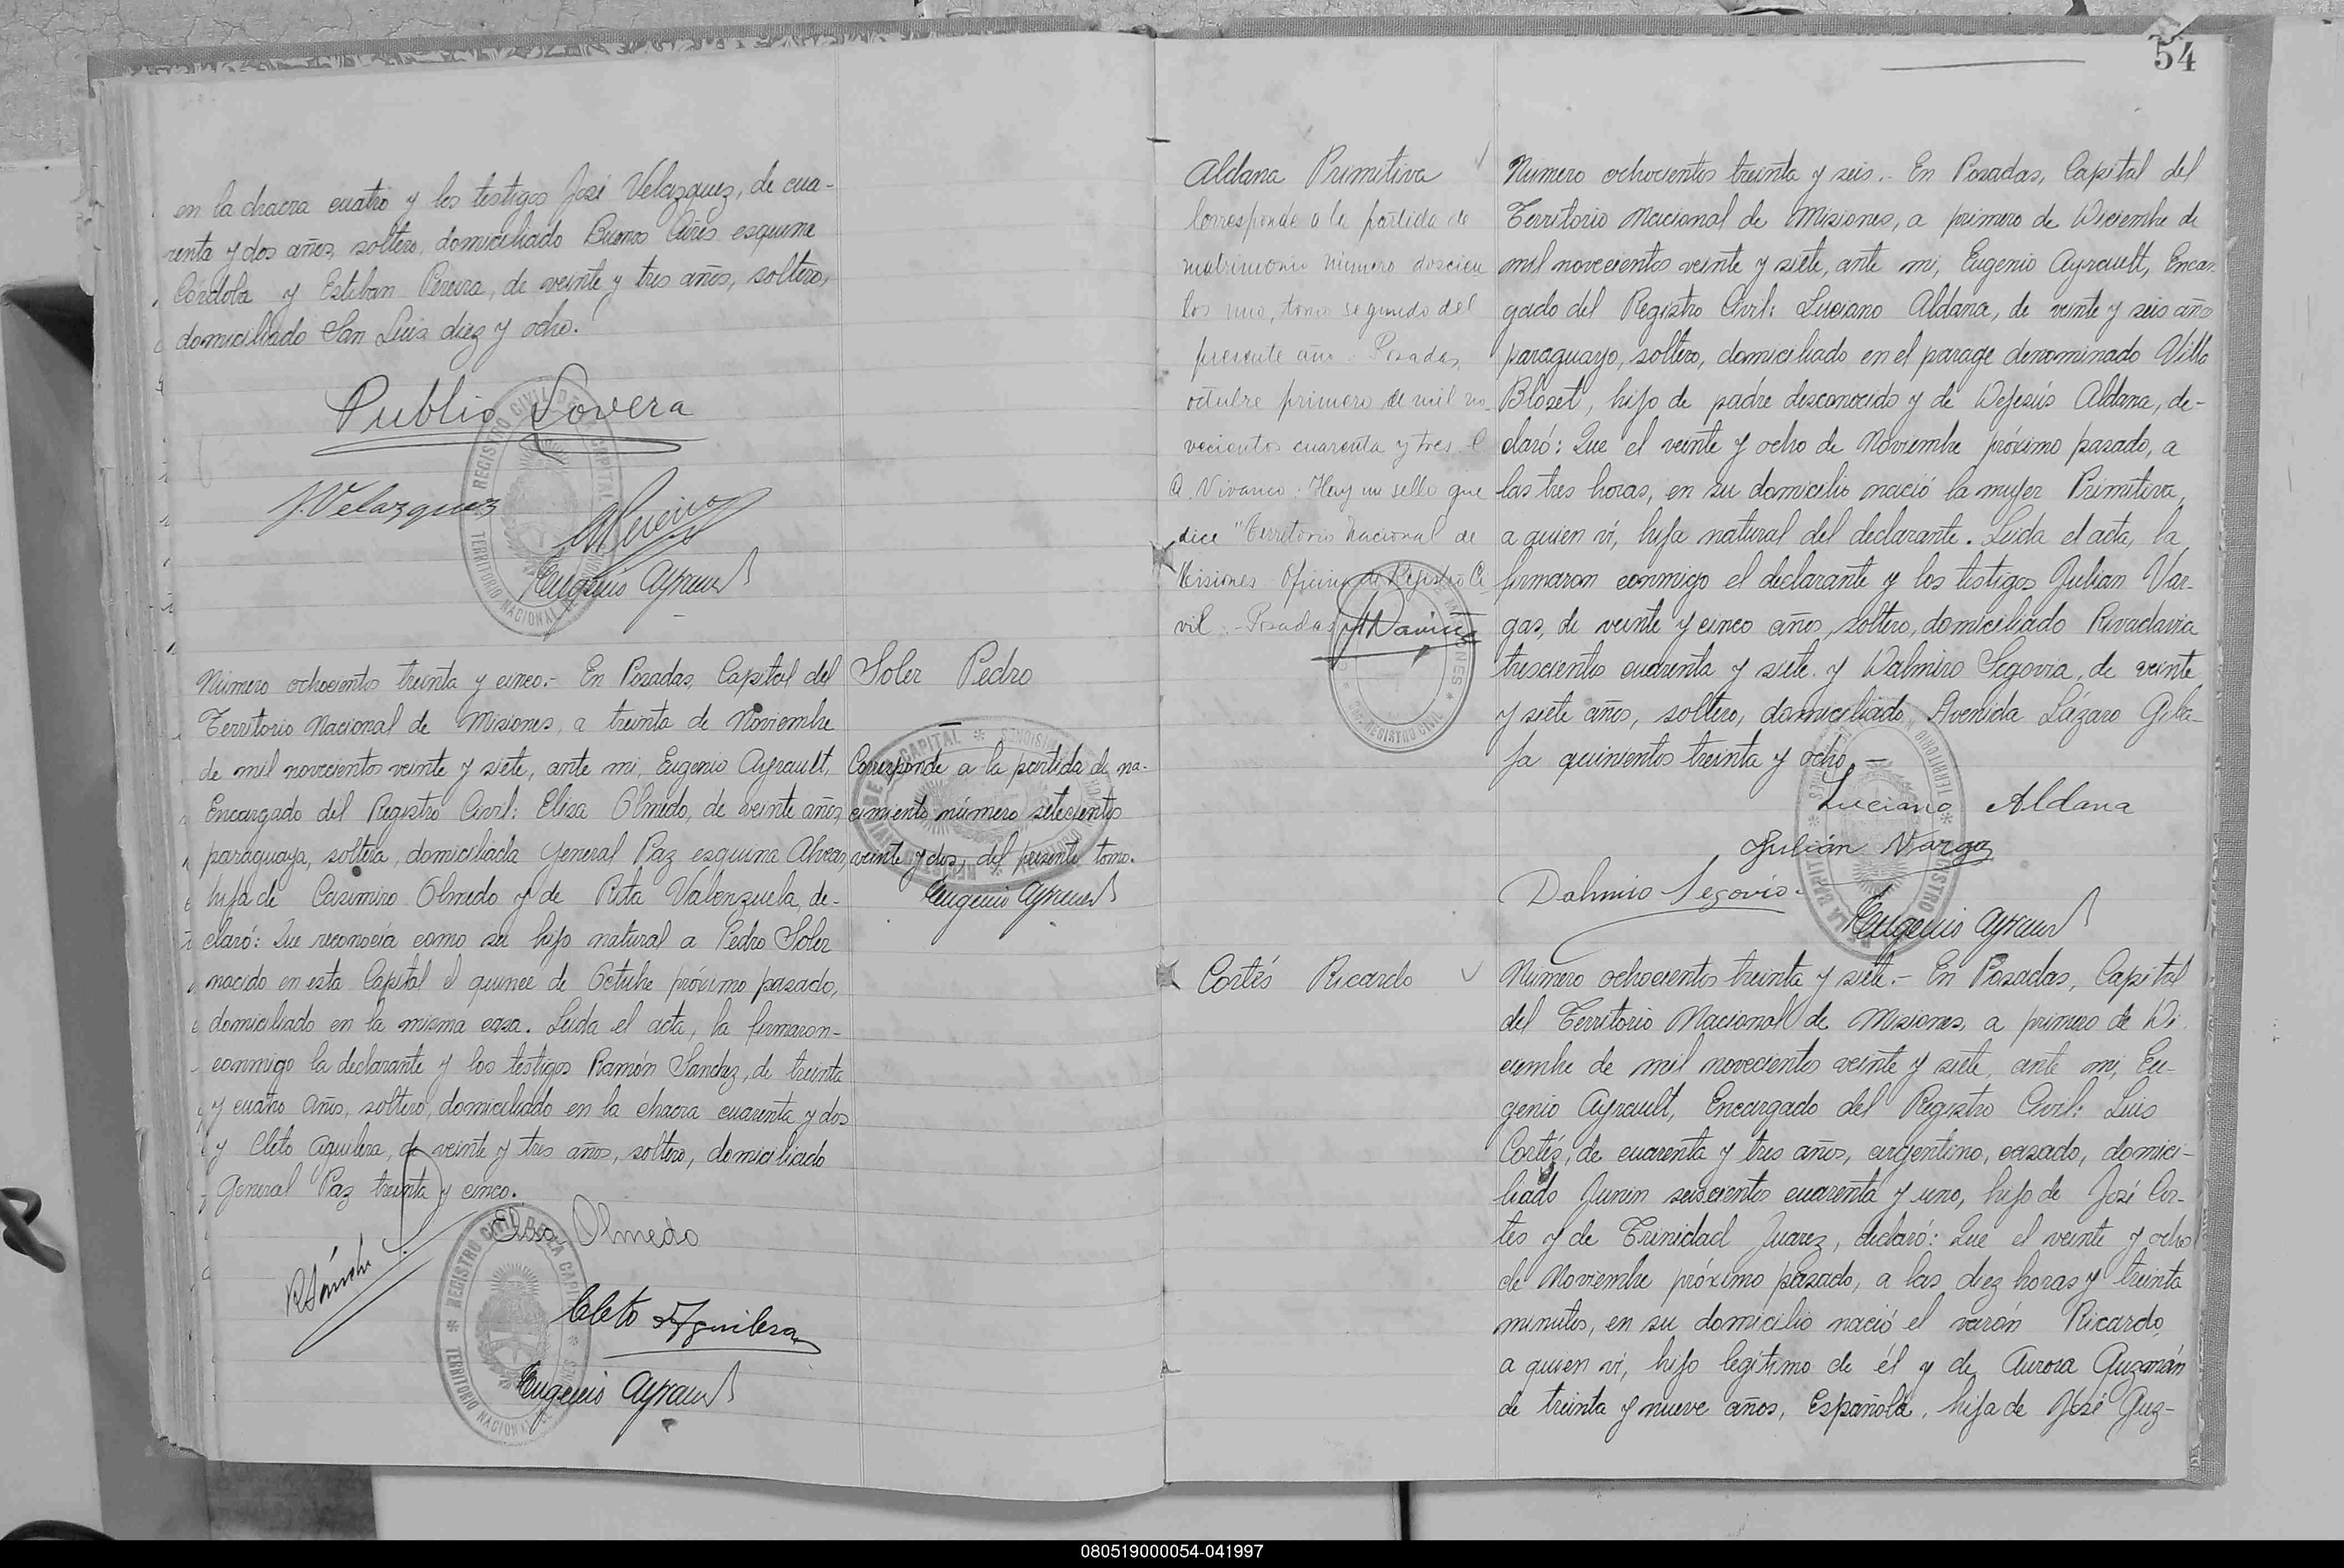 en la chacra cuatro y los testigos José Velazquez, de cua-
renta y dos años, soltero, domiciliado Buenos Aires esquina
Córdoba y Esteban Pereira, de veinte y tres años, soltero,
domiciliado San Luis diez y ocho.
Publio Lovera
J. Velazquez
Eugenio Ayrault
REGISTRO CIVIL DE LA CAPITAL
TERRITORIO NACIONAL DE MISIONES
Número ochocientos treinta y cinco.- En Posadas, Capital del
Territorio Nacional de Misiones, a treinta de Noviembre
de mil novecientos veinte y siete, ante mi, Eugenio Ayrault,
Encargado del Registro Civil: Elisa Olmedo, de veinte años,
paraguaya, soltera, domiciliada General Paz esquina Alvear,
hija de Casimiro Olmedo y de Rita Valenzuela, de-
claró: Que reconocía como su hijo natural a Pedro Soler
nacido en esta Capital el quince de Octubre próximo pasado,
domiciliado en la misma casa. Leida el acta, la firmaron-
conmigo la declarante y los testigos Ramón Sanchez, de treinta
y cuatro años, soltero, domiciliado en la chacra cuarenta y dos
y Cleto Aguilera, de veinte y tres años, soltero, domiciliado
General Paz treinta y cinco.
Elisa Olmedo
Cleto Aguilera
Eugenio Ayrault
REGISTRO CIVIL DE LA CAPITAL
TERRITORIO NACIONAL DE MISIONES
Soler Pedro
Corresponde a la partida de na-
cimiento número setecientos
veinte y dos, del presente tomo.
Eugenio Ayrault
54
Aldana Primitiva
Corresponde a la partida de
matrimonio número doscien
tos uno, tomo segundo del
presente año. Posadas,
octubre primero de mil no-
vecientos cuarenta y tres. C
A. Vivanco. Hay un sello que
dice "Territorio Nacional de
Misiones Oficina de Registro Ci
vil. - Posadas
Número ochocientos treinta y seis.- En Posadas, Capital del
Territorio Nacional de Misiones, a primero de Diciembre de
mil novecientos veinte y siete, ante mi, Eugenio Ayrault, Encar-
gado del Registro Civil: Luciano Aldana, de veinte y seis años
paraguayo, soltero, domiciliado en el parage denominado Villa
Bloset, hijo de padre desconocido y de Dejesús Aldana, de-
claró: Que el veinte y ocho de Noviembre próximo pasado, a
las tres horas, en su domicilio nació la mujer Primitiva,
a quien ví, hija natural del declarante. Leida el acta, la
firmaron conmigo el declarante y los testigos Julian Var-
gas, de veinte y cinco años, soltero, domiciliado Rivadavia
trescientos cuarenta y siete y Dalmiro Segovia, de veinte
y siete años, soltero, domiciliado Avenida Lázaro Giba-
ja quinientos treinta y ocho.-
Luciano Aldana
Julián Vargas
Dalmiro Segovia
Eugenio Ayrault
Cortés Ricardo
Número ochocientos treinta y siete.- En Posadas, Capital
del Territorio Nacional de Misiones, a primero de Di
ciembre de mil novecientos veinte y siete, ante mi, Eu-
genio Ayrault, Encargado del Registro Civil: Luis
Cortés, de cuarenta y tres años, argentino, casado, domici-
liado Junin seiscientos cuarenta y uno, hijo de José Cor-
tes y de Trinidad Juarez, declaró: Que el veinte y ocho
de Noviembre próximo pasado, a las diez horas y treinta
minutos, en su domicilio nació el varón Ricardo,
a quien ví, hijo legítimo de él y de Aurora Guzmán
de treinta y nueve años, Española, hija de José Guz-
080519000054-041997